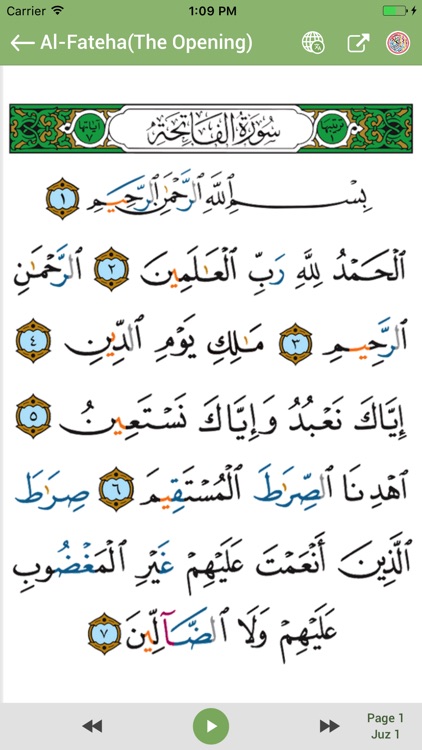 Carrier 1:09 PM
Al-Fateha(The Opening)
ترتيبها ١ سُورَةُ الفَاتِحَة آياتها ٧
بِسْمِ ٱللَّهِ ٱلرَّحْمَٰنِ ٱلرَّحِيمِ ١
ٱلْحَمْدُ لِلَّهِ رَبِّ ٱلْعَٰلَمِينَ ٢ ٱلرَّحْمَٰنِ
ٱلرَّحِيمِ ٣ مَٰلِكِ يَوْمِ ٱلدِّينِ ٤
إِيَّاكَ نَعْبُدُ وَإِيَّاكَ نَسْتَعِينُ ٥
ٱهْدِنَا ٱلصِّرَٰطَ ٱلْمُسْتَقِيمَ ٦ صِرَٰطَ
ٱلَّذِينَ أَنْعَمْتَ عَلَيْهِمْ غَيْرِ ٱلْمَغْضُوبِ
عَلَيْهِمْ وَلَا ٱلضَّآلِّينَ ٧
Page 1
Juz 1